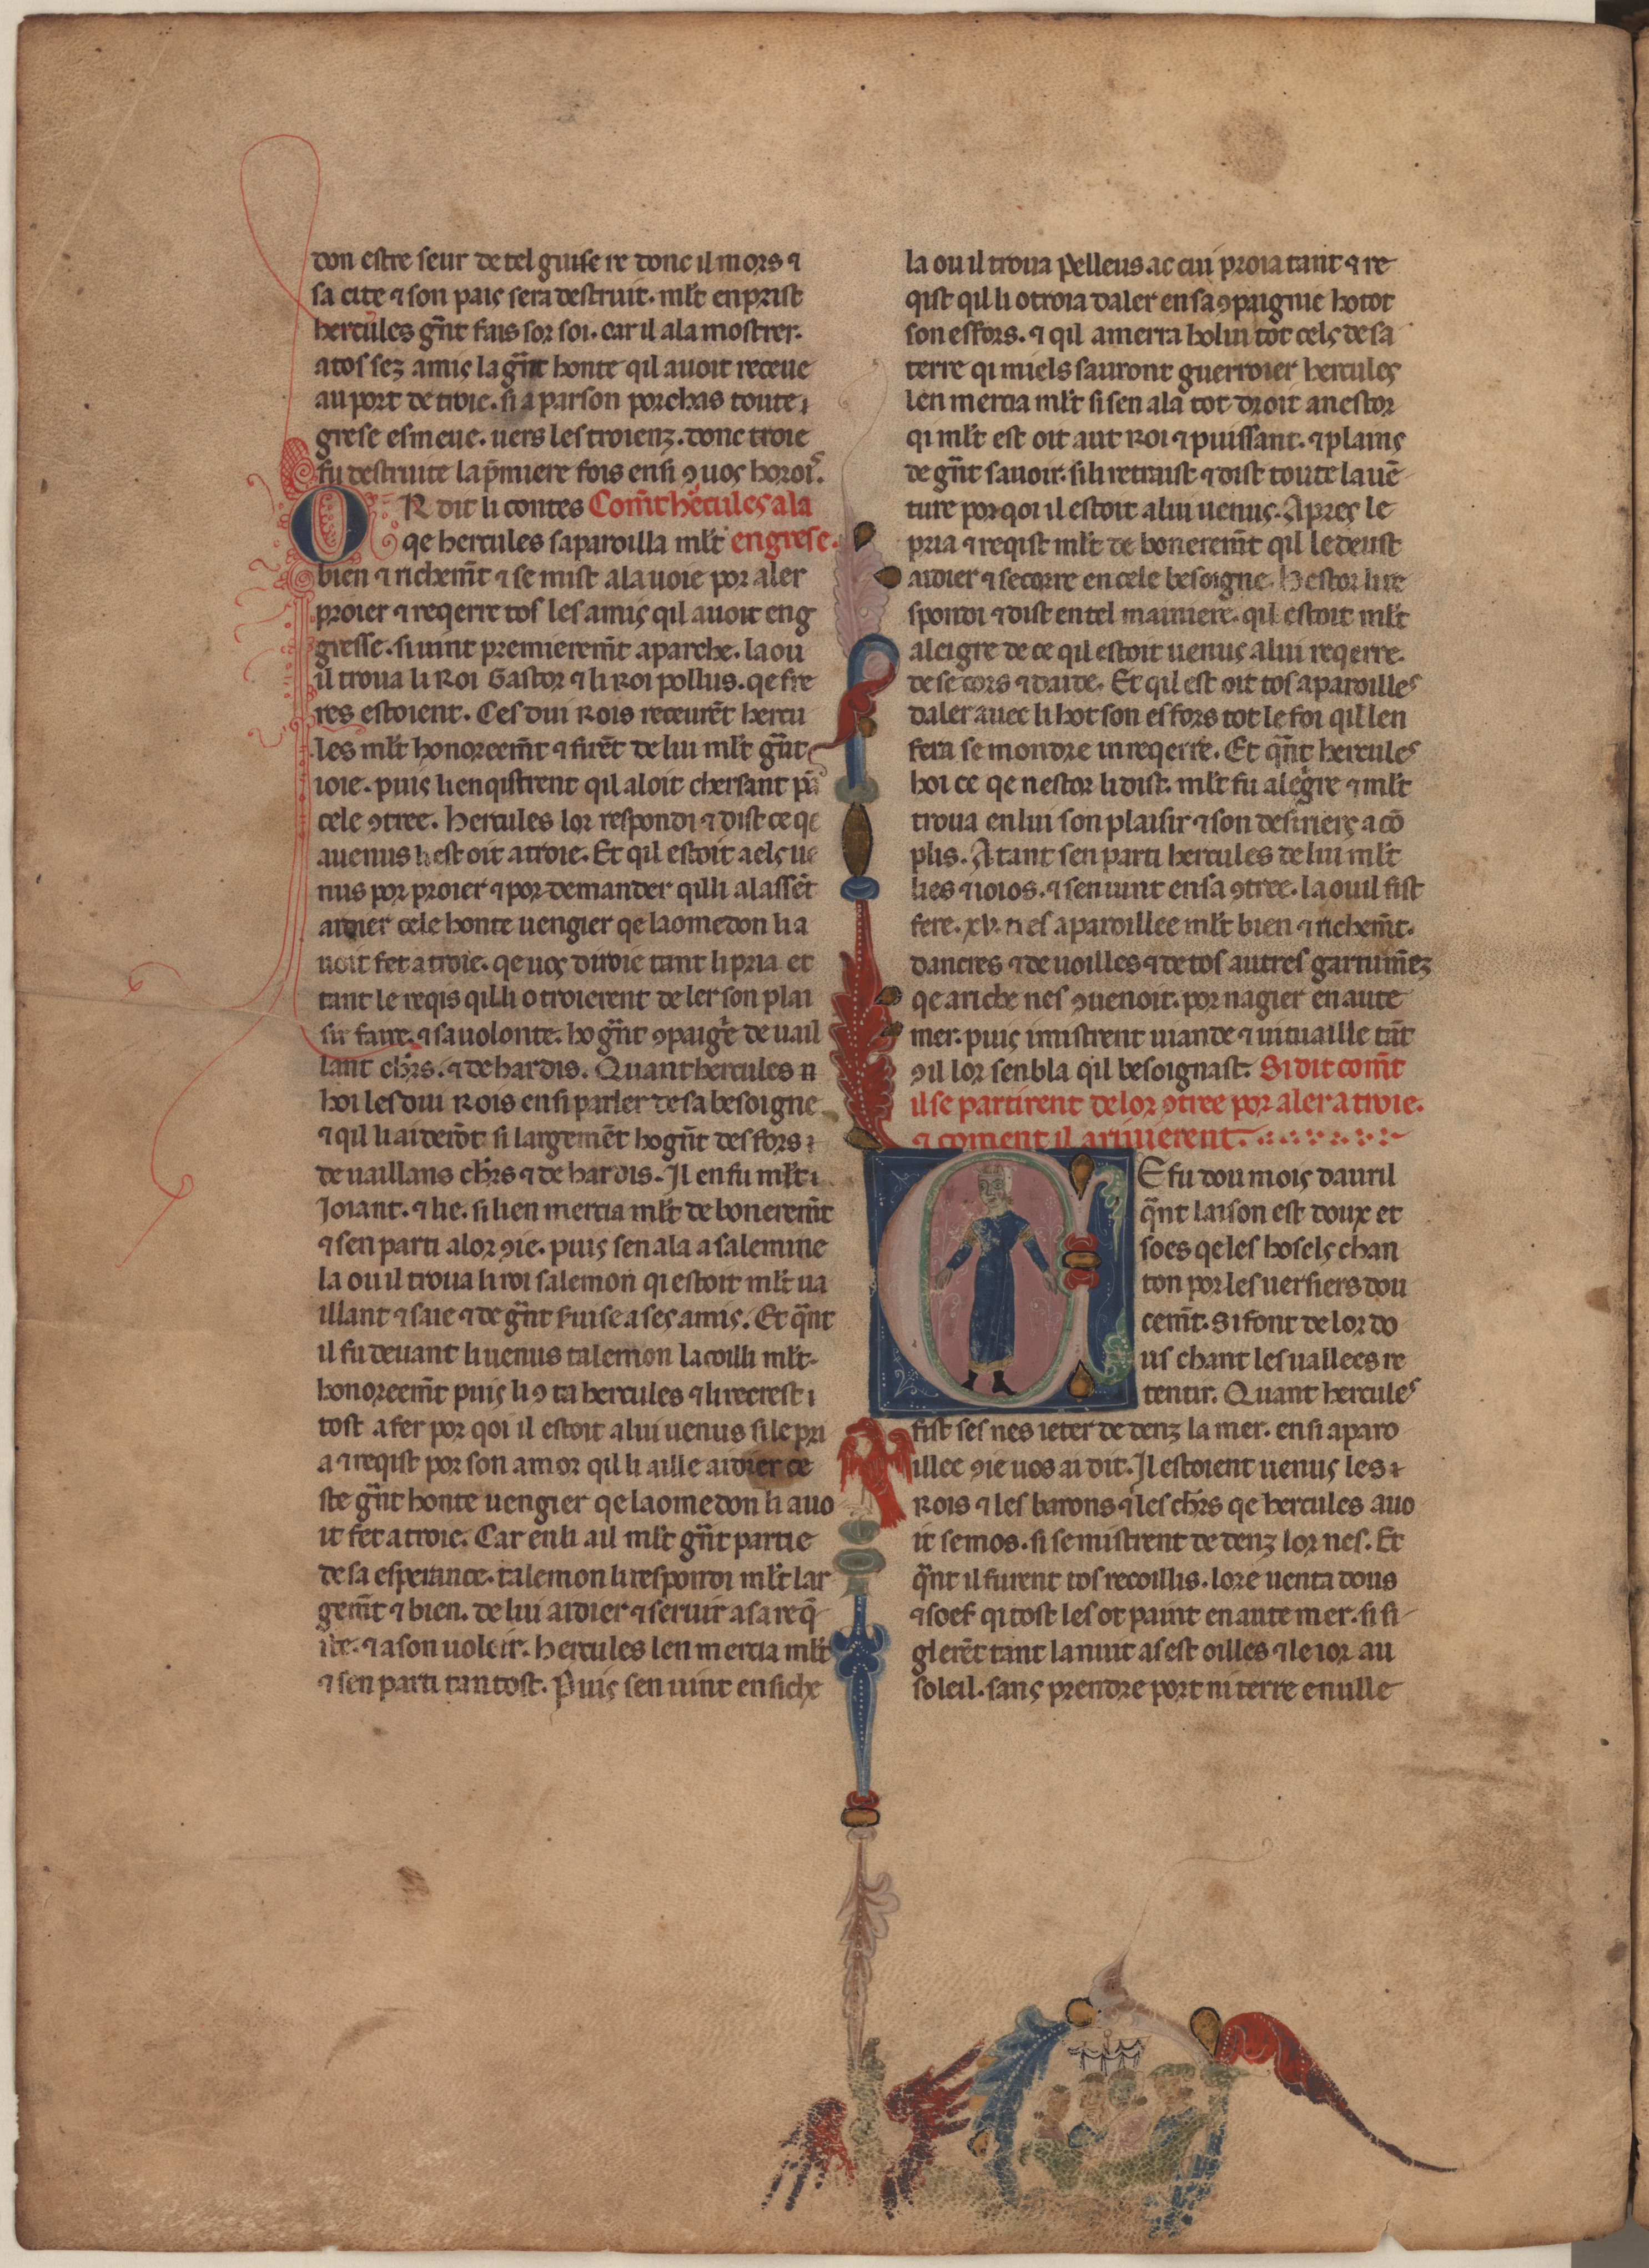 don estre seur de tel guise re donc il mors ⁊
sa cite ⁊ son païs sera destruit. ml̃t en prist
hercules gñt fais sor soi. car il ala mostrer.
a tos sez amiç la gñt honte qil avoit receue
au port de troie. si a par son porchas toute ⁊
grese esmeue. uers les troienz. donc troie
fu destruite la p̃miere fois ensi ꝯ uoç horoiz.
OR dit li contes Com̃t hercules ala
qe hercules saparoilla ml̃t en grese.
bien ⁊ richem̃t ⁊ se mist ala uoie por aler
proier ⁊ reqerre tos les amiç qil auoit eng
gresse. si uint premierem̃t a parche. la ou
il troua li Roi Gastor ⁊ li Roi pollus. qe fre
res estoient. Ces dui Rois receurẽt hercu
les ml̃t honoreem̃t ⁊ furẽt de lui ml̃t gñt
ioie. puiç li enqistrent qil aloit chersant
cele ꝯtree. hercules lor respondi ⁊ dist ce qe
auenus li est oit a troie. Et qil estoit a elç ue
nus por proier ⁊ por demander qil li alassẽt
aidier cele honte uengier qe laomedon li a
uoit fet a troie. qe uoç diroie tant li pria et
tant le reqis qil li otroierent de ler son plai
sir faire. ⁊ sa uolonte. ho gñt ꝯpaigẽ de uail
lant chr̃s. ⁊ de hardis. Quant hercules n
hoi les dui Rois ensi parler de sa besoigne
⁊ qil li aiderõt si largemẽt ho gñt desfors ⁊
de uaillans chr̃s ⁊ de hardis. Il en fu ml̃t ⁊
Joiant. ⁊ lie. si li en mercia ml̃t debonerem̃t
⁊ sen parti alor ꝯie. puiç sen ala a salemine
la ou il troua li roi salemon qi estoit ml̃t ua
illant ⁊ saie ⁊ de gñt fuise a seç amiç. Et qñt
il fu deuant li uenus talemon lacoilli ml̃t
honoreem̃t puiç li ꝯta hercules ⁊ li recrest ⁊
tost a fer por qoi il estoit a lui uenus si le pri
a ⁊ reqist por son amor qil li aille aidier de
ste gñt honte uengier qe laomedon li auo
it fet a troie. Car en li a il ml̃t gñt partie
de sa esperance. talemon li respondi ml̃t lar
gem̃t ⁊ bien. de lui aidier ⁊ seruir a sa req̃
ste. ⁊ a son uoloir. hercules len mercia ml̃t
⁊ sen parti tantost. Puiç sen uint en siche
la ou il troua pelleus. ac cui proia tant ⁊ re
qist qil li otroia daler en sa ꝯpaignie ho tot
son esfors. ⁊ qil amerra ho lui tot celç de sa
terre qi miels sauront guerroier hercules
len mercia ml̃t si sen ala tot droit a nestor
qi ml̃t est oit aut Roi ⁊ puissant. ⁊ plainç
de gñt sauoir. si li retraist ⁊ dist toute lauẽ
ture por qoi il estoit a lui uenuç. Apreç le
pria ⁊ reqist ml̃t de bonerem̃t qil le deust
aidier ⁊ secorre en cele besoigne. hestor li re
spondi ⁊ dist en tel mainiere. qil estoit ml̃t
aleigre de ce qil estoit uenuç a lui reqerre.
de se cors ⁊ daide. Et qil est oit tos aparoilles
daler auec li ho tot son esfors tot le foi qil len
fera semondre in reqerre. Et qñt hercules
hoi ce qe nestor li dist. ml̃t fu alegre ⁊ ml̃t
troua en lui son plaisir ⁊ son desirierç acõ
plis. Atant sen parti hercules de lui ml̃t
lies ⁊ ioios. ⁊ sen uint en sa ꝯtree. la ou il fist
fere .xv. nes aparoillee ml̃t bien ⁊ richem̃t.
dancres ⁊ de uoilles ⁊ de tos autres garnimẽz
qe a riche nes ꝯuenoit. por nagier en aute
mer. puiç i mistrent uiande ⁊ uituaille tãt
ꝯ il lor senbla qil besoignast. Si dit com̃t
il se partirent de lor ꝯtree por aler a troie.
⁊ coment il ariuierent.
Ce fu dou moiç dauril
q̃nt laison est doux et
soes qe les hoselç chan
ton por les uersiers dou
cem̃t. si font de lor do
us chant les uallees re
tentir. Quant hercules
fist ses nes ieter de denz la mer. ensi aparo
illee ꝯie uos ai dit. Il estoient uenuç les ⁊
Rois ⁊ les barons ⁊ les chr̃s qe hercules auo
it semos. si se mistrent de denz lor nes. Et
q̃nt il furent tos recoillis. lore uenta dous
⁊ soef qi tost les ot paint en aute mer. si si
glerẽt tant la nuit as est oilles ⁊ le ior au
soleil. sanç prendre port ni terre en ulle